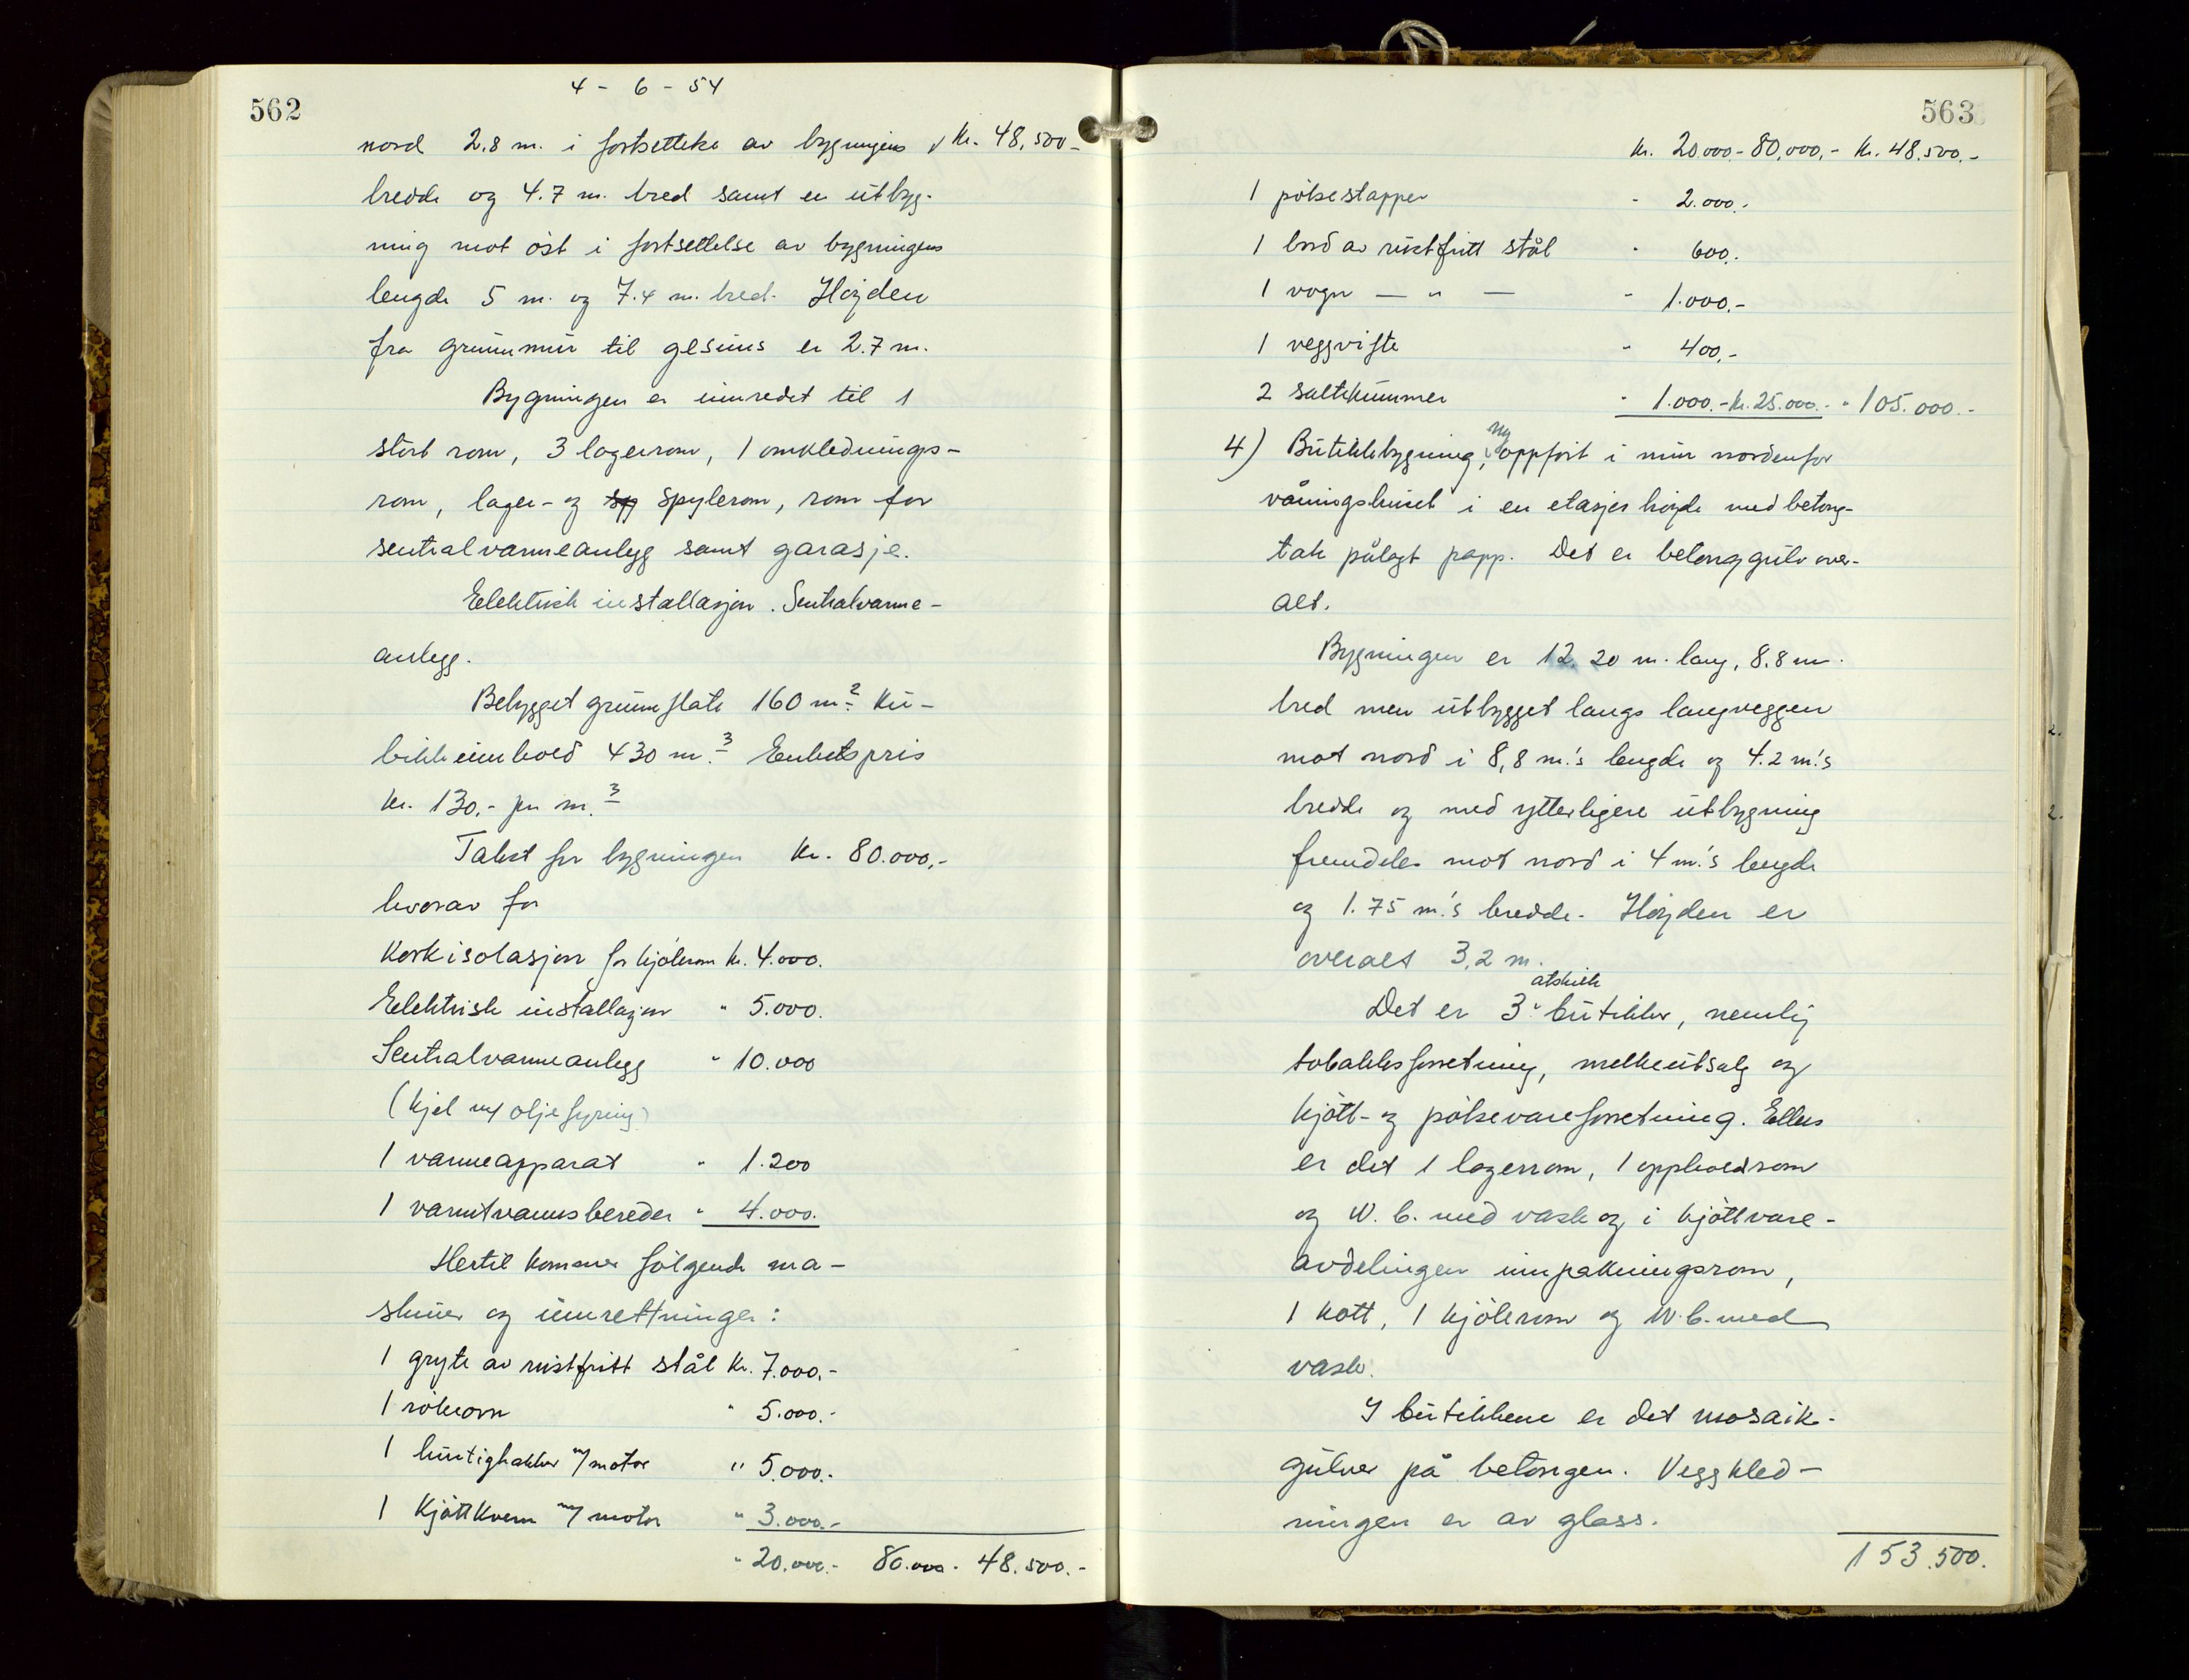 562
4 - 6 - 54
nord 2.8 m. i fortsettelse av bygningens Kr. 48,500-
bredde og 4.7 m. bred samt en utbyg-
ning mot öst i fortsettelse av bygningens
lengde 5 m. og 7.4 m. bred. Höyden
fra grunnmur til gesims er 2.7 m.
Bygningen er innredet til 1
stort rom, 3 lagerrom, 1 omklednings-
rom, lager- og sp spylerom, rom for
sentralvarmeanlegg samt garasje.
Elektrisk installasjon. Sentralvarme-
anlegg.
Bebygget grunnflate 160 m.2 Ku-
bikkinnhold 430 m.3 Enhetspris
kr. 130,- pr. m.3
Takst for bygningen Kr. 80.000,-
hvorav for
Korkisolasjon for kjölerom kr. 4.000.
Elektrisk installasjon " 5.000.
Sentralvarmeanlegg " 10.000
(kjel m/ oljefyring)
1 varmeapparat " 1.200
1 varmtvannsbereder " 4.000.
Hertil kommer fölgende ma-
skiner og innretninger:
1 gryte av rustfritt stål Kr. 7.000.-
1 rökeovn " 5.000.-
1 hurtighakker m/motor " 5.000.-
1 Kjöttkvern m/ motor " 3.000.-
" 20.000.- 80.000.- 48.500.-
563
Kr. 20.000.- 80,000,- Kr. 48,500.-
1 pölsestapper " 2.000.-
1 bord av rustfritt stål " 600.-
1 vogn — " — " 1.000.-
1 veggvifte " 400.-
2 saltekummer " 1.000.- Kr. 25.000.- " 105.000.-
ny
4) Butikkbygning, oppfört i mur nordenfor
våningshuset i en etasjes höyde med betong-
tak pålagt papp. Det er betonggulv over-
alt.
Bygningen er 12.20 m. lang, 8.8 m.
bred men utbygget langs langveggen
mot nord i 8,8 m.'s lengde og 4.2 m.'s
bredde og med ytterligere utbygning
fremdeles mot nord i 4 m.'s lengde
og 1.75 m.'s bredde. Höyden er
overalt 3,2 m.
atskilte
Det er 3 butikker, nemlig
tobakksforretning, melkeutsalg og
kjött- og pölsevareforretning. Ellers
er det 1 lagerrom, 1 oppholdsrom
og W.C. med vask og i kjöttvare-
avdelingen innpakningsrom,
1 kott, 1 kjölerom og W.C. med
vask.
I butikkene er det mosaik-
gulver på betongen. Veggkled-
ningen er av glass.
153.500.